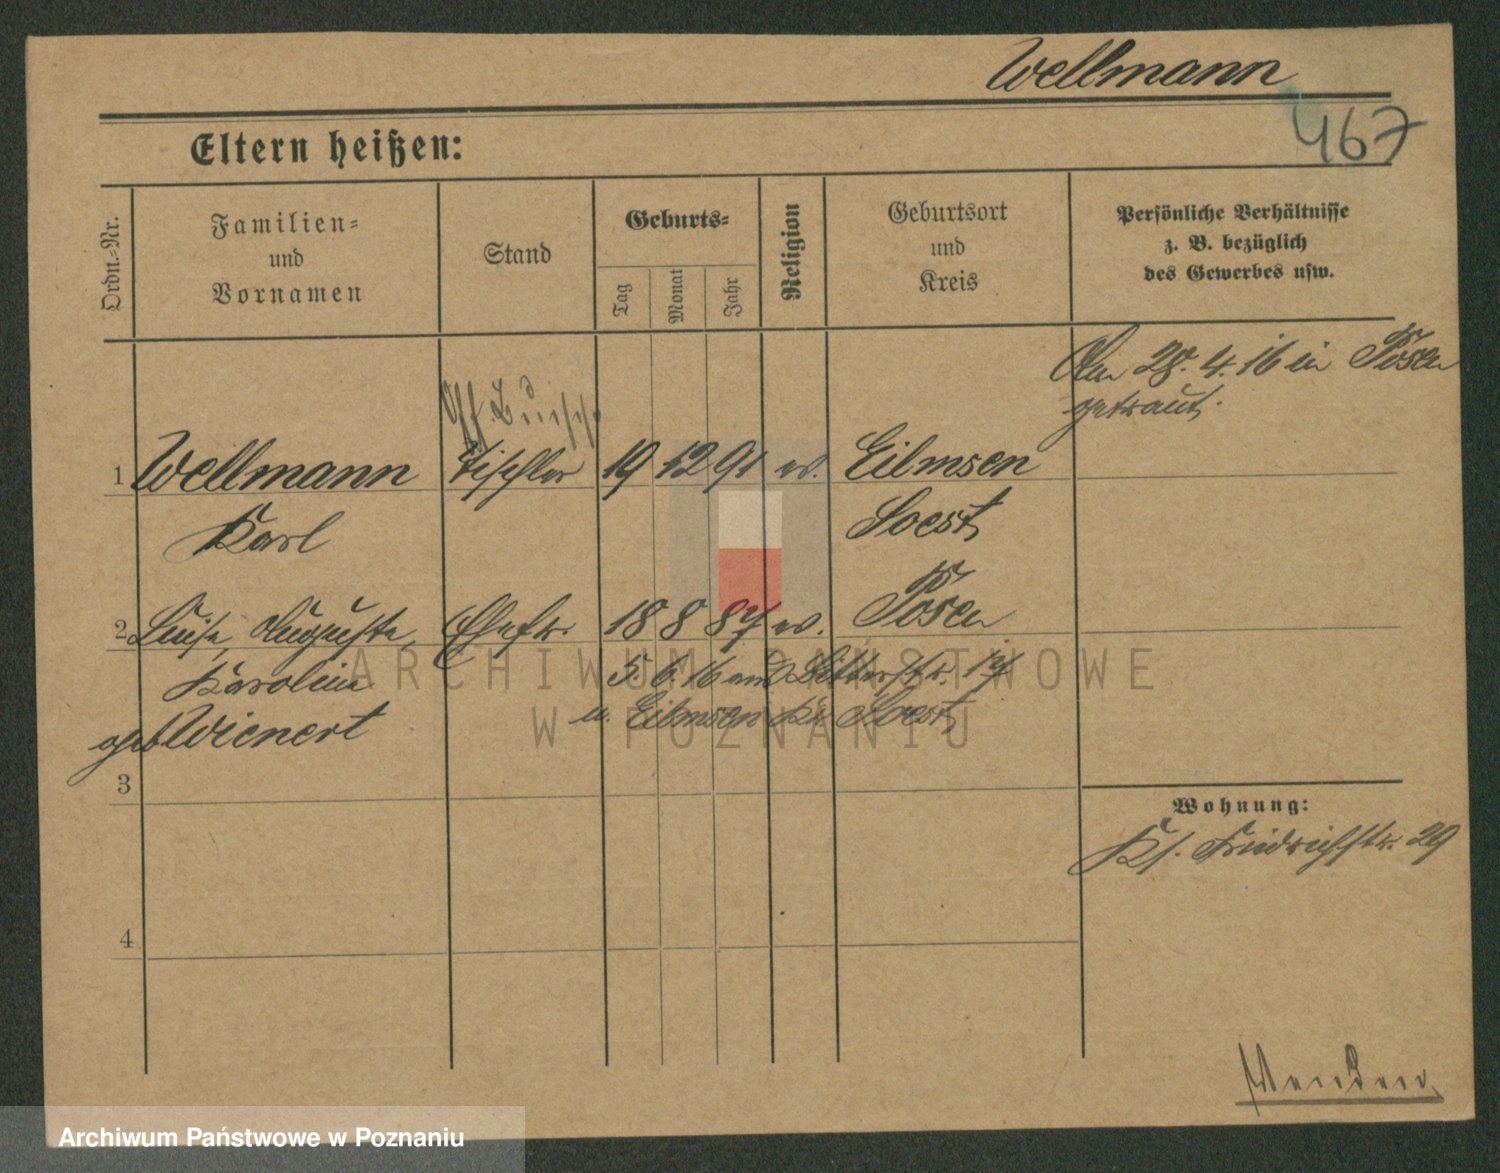 Wellmann
467
Eltern heißen:
Ordn.-Nr.
Familien-
und
Vornamen
Stand
Geburts-
Tag
Monat
Jahr
Religion
Geburtsort
und
Kreis
Persönliche Verhältnisse
z. B. bezüglich
des Gewerbes usw.
Am 28. 4. 16 in Posen
getraut.
1 Wellmann Tischler 19 12 91 ev. Eilmsen
Karl Soest
2 Luise, Auguste, Ehefr. 18 8 87 ev. Posen
Karoline 5. 6. 16 and Ritterstr. 14
geb Wienert u. Eilmsen Kr. Soest
3
4
Wohnung:
Ks. Friedrichstr. 29
ARCHIWUM PAŃSTWOWE
W POZNANIU
Archiwum Państwowe w Poznaniu